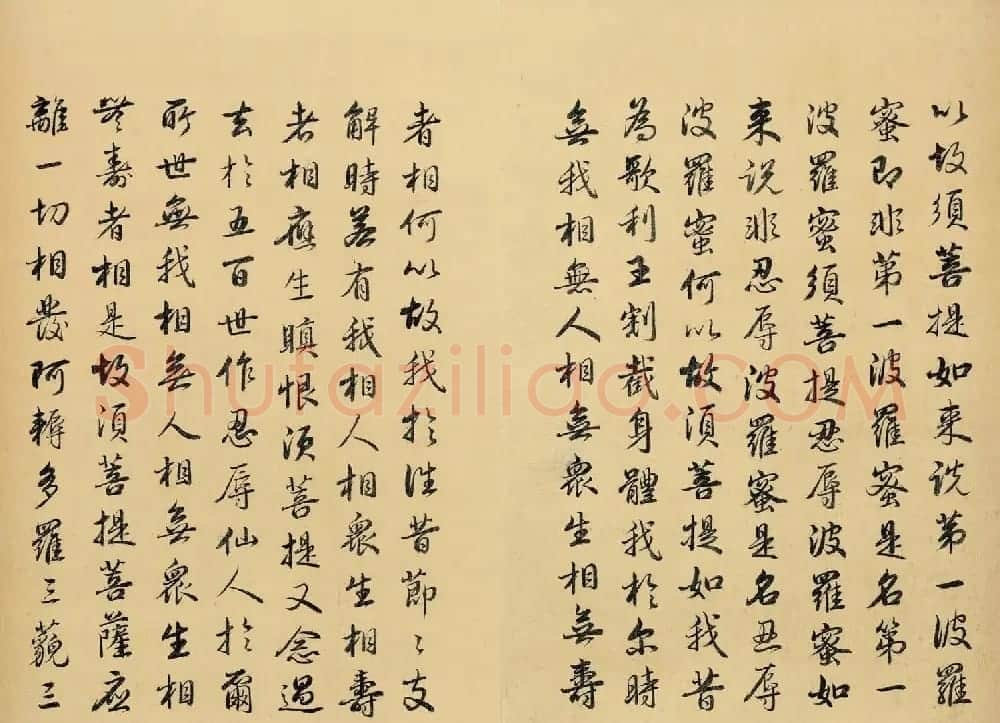 以故須菩提如来説第一波羅
蜜即非第一波羅蜜是名第一
波羅蜜須菩提忍辱波羅蜜如
来説非忍辱波羅蜜是名忍辱
波羅蜜何以故須菩提如我昔
為歌利王割截身體我於尔時
無我相無人相無衆生相無壽
者相何以故我於往昔節〻支
解時若有我相人相衆生相壽
者相應生瞋恨須菩提又念過
去於五百世作忍辱仙人於爾
所世無我相無人相無衆生相
無壽者相是故須菩提菩薩應
離一切相發阿耨多羅三藐三
Shufaziliao.COM